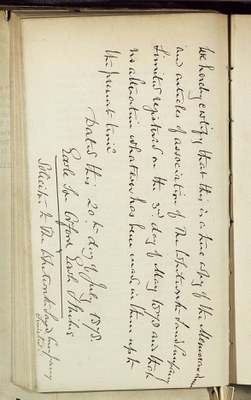 We hereby certify that this is a true copy of the Memorandum
and articles of association of The Whitworth Land Company
Limited registered on the 3rd day of May 1878 and that
no alteration whatever has been made in them up to
the present time
Dated this 20th day of July 1878.
Earle Son Orford Earle & Milne
Solicitors to The Whitworth Land Company
Limited